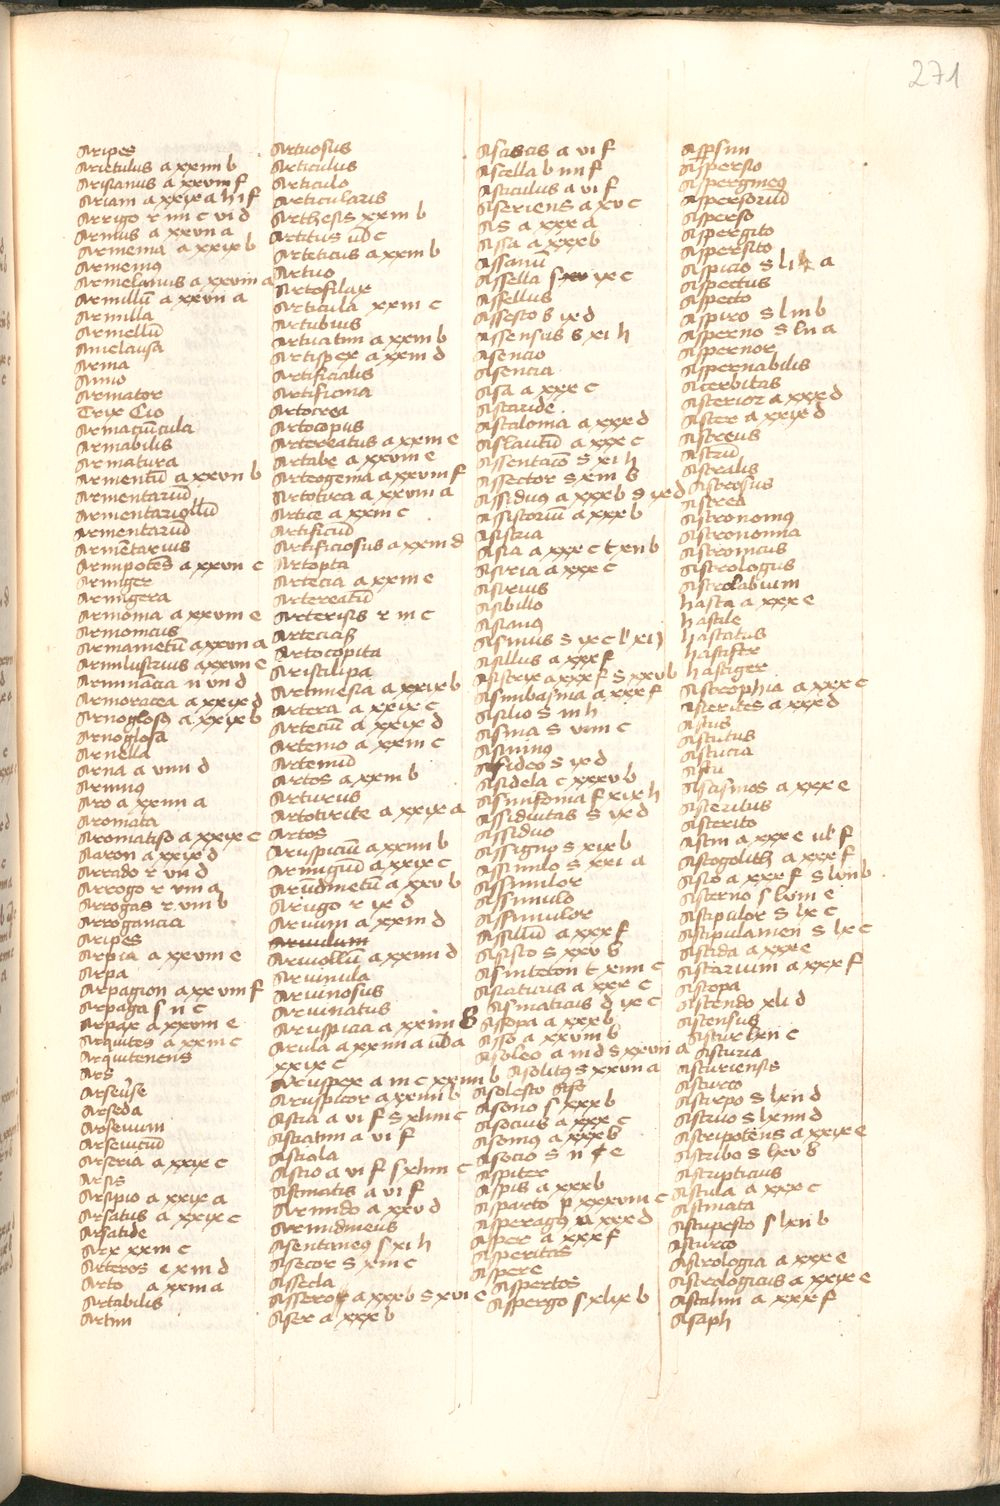 271
Aripes
Arietulus a xxiiii b
Arrianus a xxviii f
Ariam a xxix a h i f
Arrigo r iiii c vi d
Armus a xxvii a
Armenia a xxix b
Armeniꝰ
Armelanus a xxviii a
Armillū a xxvii a
Armilla
Armellū
Amelausa
Arma
Armo
Armator
Trix Cio
Armaciūcula
Armabilis
Armatura
Armentū a xxvii b
Armentariū
Armentariollū
Armentariū
Armētarius
Armipotēs a xxvii c
Armiger
Armigera
Armonia a xxviii e
Armonicus
Armametū a xxvii a
Armilustrius a xxvii e
Armoracea a xxix d
Arnoglosa a xxix b
Arnoglosa
Arnella
Arna a viiii d
Aro a xxiiii a
Aromata
Aromatiso a xxix c
Aaron a xxix d
Arrado r vii d
Arrogo r viii a
Arrogas r viii b
Arrogancia
Aripes
Arpia a xxviii e
Arpa
Arpagion a xxviii f
Arpaga s ii c
Arpax a xxviii e
Arquites a xxiii c
Arquitenens
Ars
Arseda
Arseria a xxix c
Arsis
Arsipio a xxix a
Arsatus a xxix c
Arsatide
Arx xxiii c
Arteros c xiii d
Arto a xxiii a
Artabilis
Artim
Artuosus
Articulus
Articulo
Articularis
Arthesis xxiii b
Artitus ub̄ c
Arteticus a xxiii b
Artuo
Artofilax
Articula xxiii c
Artubius
Artuatim a xxiii b
Artispex a xxiii d
Artificialis
Artificina
Artocrea
Artocopus
Artereatus a xxiii e
Artabe a xxviii e
Arteogema a xxviii f
Artotira a xxviii a
Artice a xxiii c
Artificiū
Artificiosus a xxiii d
Artopta
Artecia a xxiii e
Artereatū
Arterisis r iii c
Artocopita
Aristilipa
Artimesia a xxix b
Artera a xxix c
Arteciū a xxix d
Artemo a xxiii c
Artemiū
Artos a xxiii b
Arturus
Artotirite a xxix a
Artos
Aruspiciū a xxiiii b
Armiguū a xxix c
Arūdinetū a xxv b
Arugo r ix d
Aruum a xxiii d
Aruulum
Aruollū a xxiiii d
Aruinula
Aruinosus
Aruinatus
Aruspicia a xxiiii B
Arula a xxiiii a ub̄ a
xxix c
Aruspex a iii c xxiiii b
Aruspicor a xxiiii b
Astia a vi f s xliiii c
Astiatim a vi f
Astiola
Astio a vi f s xliiii c
Astmatis a vi f
Arundo a xxv d
Arundineus
Asentaneꝰ s xi h
Asecor s xiii c
Assecla
Asseror a xxx b s xvi e
Aser a xxx b
Asciscis a vi f
Ascella b iiii f
Asticulus a vi f
Aseriens a xv c
As a xxx a
Assa a xxx b
Assanū
Assella s xv ix c
Asellus
Assesto s ix d
Assensus s xi h
Asencio
Asencia
Asa a xxx c
Astaride
Astaloma a xxx d
Aslautū a xxx c
Assentacō s xi h
Assector s xiii b
Assiduꝰ a xxx b s ix d
Assistoriū a xxx b
Asistria
Asia a xxx c t xii b
Asiria a xxx c
Asirius
Asibillo
Asianꝰ
Asinius s ix c l xii
Asillus a xxx f
Asistrix a xxx f s xxv b
Asimbasma a xxx f
Asilio s iii h
Asina s viii c
Asininꝰ
Asideo s ix d
Asidela c xxxv b
Asimfonia f xix h
Assiduitas s ix d
Assiduo
Assigno s xix b
Assimilo s xxi a
Assimilor
Assimulo
Assimulor
Assiliū a xxx f
Asisto s xxv b
Asinteton t xiiii c
Asiaturus a xxx c
Asmaticus d ix c
Asopa a xxx b
Asso a xxviii b
Asoleo a iii d s xxvii a
Asolitꝰ s xxvii a
Asolesto
Asono s xxx b
Asocius a xxx c
Asomꝰ a xxx b
Asocio s ii e
Aspiter
Aspis a xxx b
Asparto p xxxviii c
Asperagꝰ a xxx d
Asper a xxx f
Asperitas
Aspere
Aspertos
Aspergo s xlix b
Aspersim
Aspersio
Aspergineꝰ
Aspersoriū
Asperso
Aspergito
Aspersito
Aspicio s li a
Aspectus
Aspecto
Aspiro s liii b
Asperno s lii a
Aspernor
Aspernabilis
Acerbitas
Asterior a xxx d
Aster a xxix d
Astreus
Astrū
Astralis
Astrosus
Astrea
Astronomꝰ
Astronomia
Astromicus
Astrologus
Astrolabium
hasta a xxx e
hastile
hastatus
hastifer
hastiger
Astrophia a xxx c
Asterites a xxx d
Astus
Astutus
Astucia
Astu
Astismos a xxx e
Asteritus
Asterito
Astm a xxx e ub̄ f
Astogolith a xxx f
Asto a xxx f s lvii b
Asterno s lviii e
Astipulor s lx c
Astipulamen s lx c
Astida a xxx e
Astarium a xxx f
Astopa
Astendo xli d
Astensus
Astur lxii c
Asturia
Asturiensis
Asturco
Astrepo s lxii d
Astruo s lxiiii d
Astripotens a xxix e
Astribo s lxv b
Astripticus
Astula a xxx c
Astinata
Astupesto s lxii b
Asturco
Astrologia a xxx e
Astrologicus a xxix e
Astalim a xxx f
Asaph